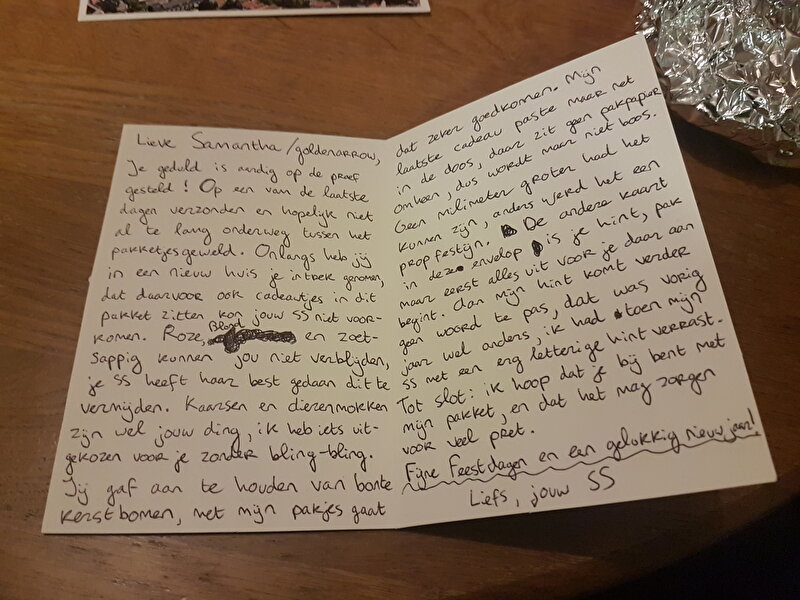 Lieve Samantha/goldenarrow,
Je geduld is aardig op de proef
gesteld! Op een van de laatste
dagen verzonden en hopelijk niet
al te lang onderweg tussen het
pakketjesgeweld. Onlangs heb jij
in een nieuw huis je intrek genomen,
dat daarvoor ook cadeautjes in dit
pakket zitten kon jouw SS niet voor-
komen. Roze, Bloed en zoet-
sappig kunnen jou niet verblijden,
je SS heeft haar best gedaan dit te
vermijden. Kaarsen en dierenmokken
zijn wel jouw ding, ik heb iets uit-
gekozen voor je zonder bling-bling.
Jij gaf aan te houden van bonte
kerstbomen, met mijn pakjes gaat
dat zeker goedkomen. Mijn
laatste cadeau paste maar net
in de doos, daar zit geen pakpapier
omheen, dus wordt maar niet boos.
Geen milimeter groter had het
kunnen zijn, anders werd het een
propfestijn. De andere kaart
in deze envelop is je hint, pak
maar eerst alles uit voor je daar aan
begint. Aan mijn hint komt verder
geen woord te pas, dat was vorig
jaar wel anders, ik had toen mijn
SS met een erg letterige hint verrast.
Tot slot: ik hoop dat je blij bent met
mijn pakket, en dat het mag zorgen
voor veel pret.
Fijne Feestdagen en een gelukkig nieuwjaar!
Liefs, jouw SS